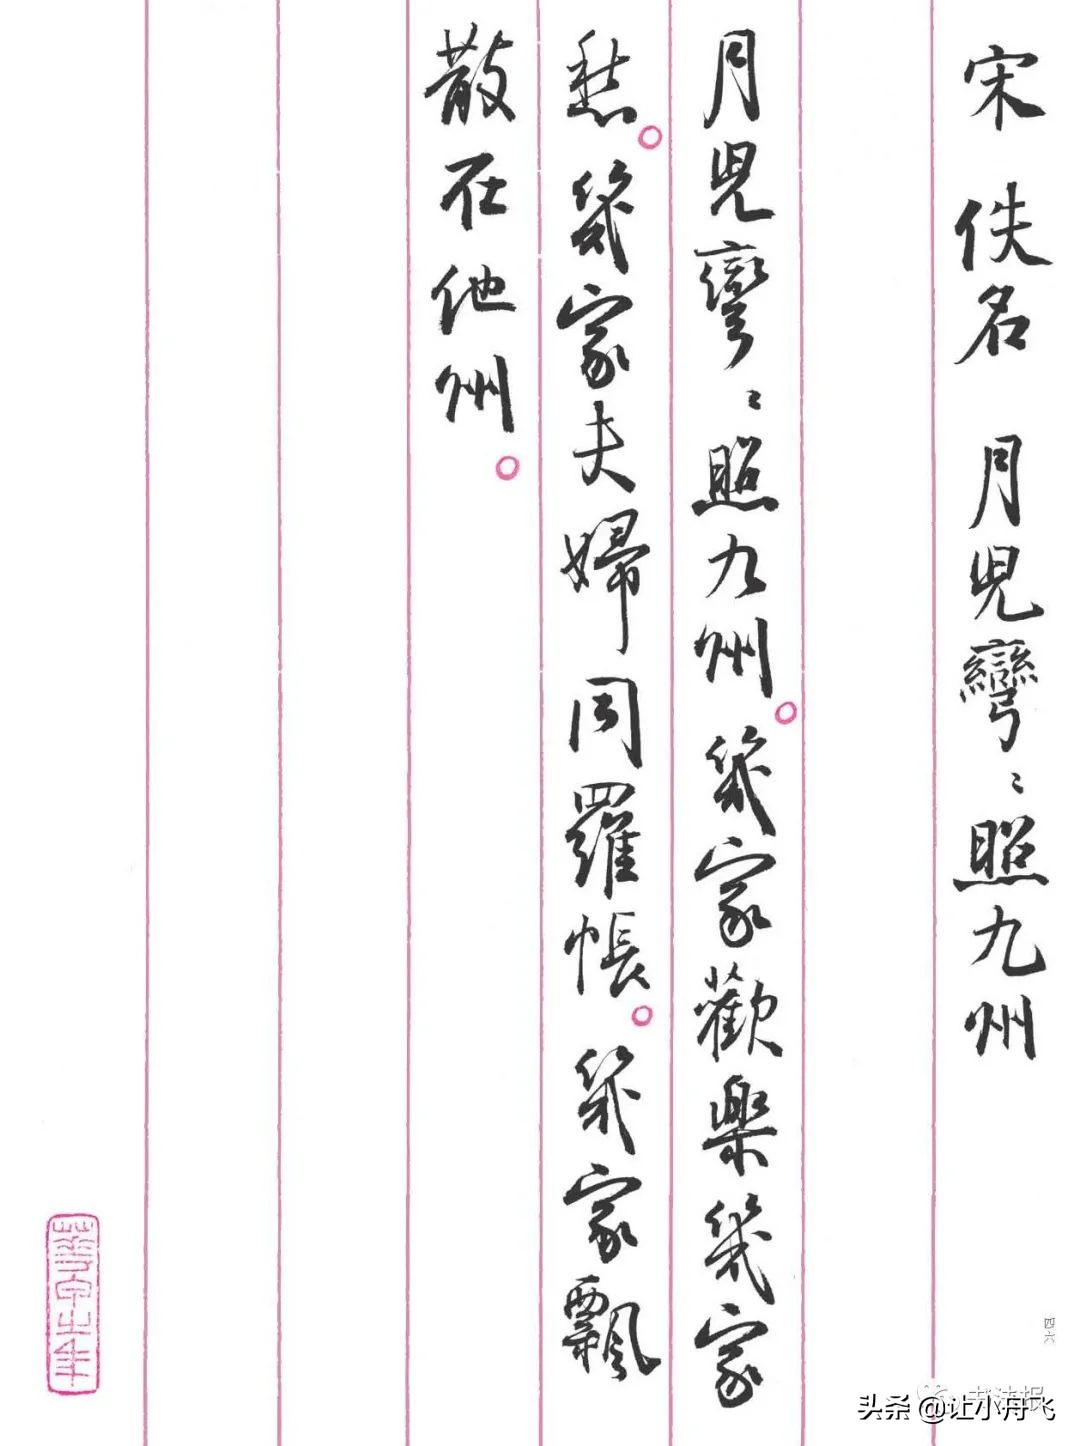 宋 佚名 月児彎〻照九州
月児彎〻照九州。幾家歡樂幾家
愁。幾家夫婦同羅帳。幾家飄
散在他州。
四六
书法报
头条 @让小舟飞